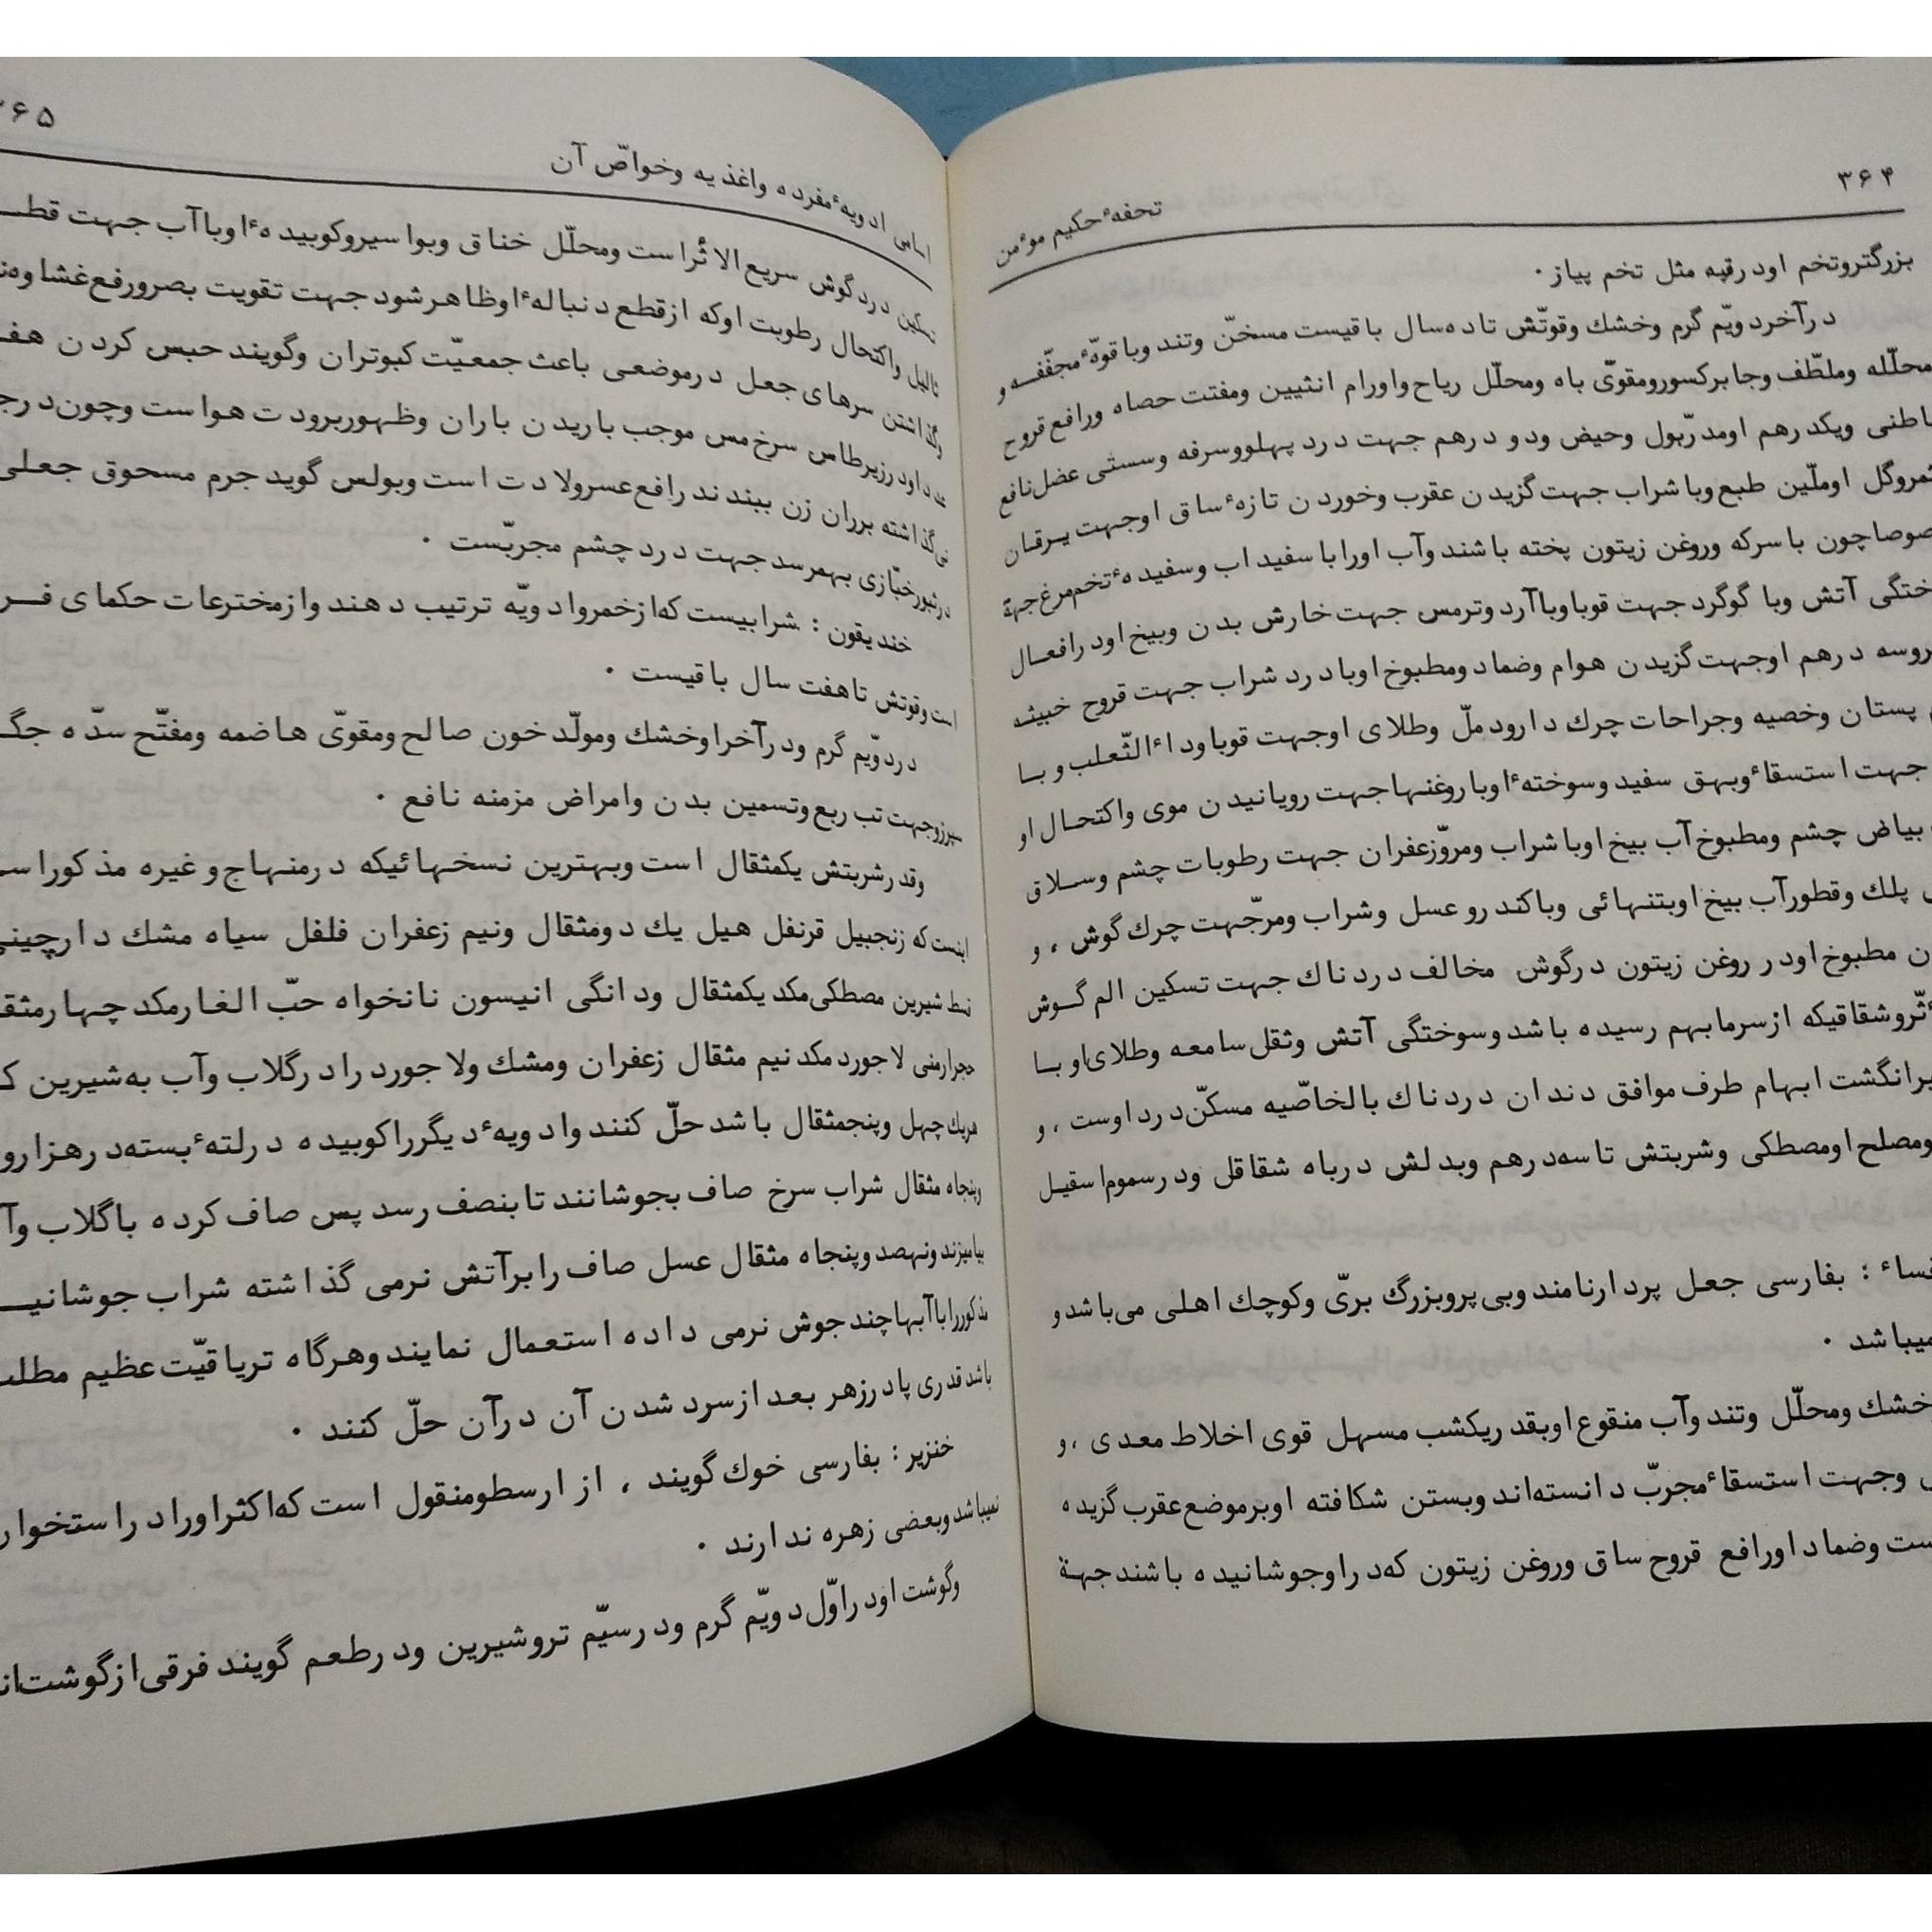 ۳۶۴
تحفهٔ حکیم موٴمن
بزرگتروتخم اودرقپه مثل تخم پیاز .
درآخردویّم گرم وخشك وقوتّش تاده‌سال باقیست مسخّن وتند وباقوّهٔ مجفّفه و
محلّله وملطّف وجابرکسورومقوّی باه ومحلّل ریاح‌واورام انثیین ومفتت حصاه ورافع قروح
ویکدرهم اومدرّبول وحیض ودو درهم جهت درد پهلووسرفه وسستی عضل‌نافع
اوملّین طبع‌وباشراب جهت‌گزیدن عقرب وخوردن تازهٔ ساق اوجهت یرقان
باسرکه وروغن زیتون پخته باشند وآب اوراباسفیداب وسفیدهٔ تخم‌مرغ‌جهة
آتش وبا گوگرد جهت قوباوباآرد وترمس جهت‌خارش بدن وبیخ‌اودرافعال
درهم اوجهت‌گزیدن هوام وضمادومطبوخ‌اوبادرد شراب جهت قروح خبیثه
پستان وخصیه وجراحات چرك دارودملّ وطلای اوجهت قوباوداءالثّعلب وبا
جهت استسقاءوبهق سفید وسوختهٔ اوباروغنهاجهت رویانیدن موی واکتحال او
بیاض چشم ومطبوخ‌آب بیخ‌اوباشراب ومروّزعفران جهت رطوبات چشم وسلاق
پلك وقطورآب بیخ‌اوبتنهائی وباکندرو عسل وشراب ومرجّهت چرك‌گوش ، و
مطبوخ‌اودر روغن زیتون درگوش مخالف دردناك جهت تسکین الم گوش
ازسرمابهم رسیده باشد وسوختگی آتش وثقل‌سامعه وطلای‌او با
ابهام طرف موافق دندان دردناك بالخاصّیه مسکنّ‌درداوست ، و
ومصلح‌اومصطکی وشربتش تاسه‌درهم وبدلش درباه شقاقل ودرسموم‌اسقیل
: بفارسی جعل پردارنامند وبی‌پروبزرگ بریّ وکوچك اهلی می‌باشدو
میباشد .
خشك ومحلّل وتند وآب منقوع‌اوبقدریکشب مسهل قوی اخلاط معدی ، و
وجهت استسقاءمجربّ دانسته‌اند وبستن شکافته اوبرموضع‌عقرب گزیده
وضماداورافع قروح ساق وروغن زیتون که‌دراوجوشانیده باشندجهة
۳۶۵
اسامی ادویهٔ مفرده واغذیه وخواصّ آن
تسکین دردگوش سریع‌الاثراست ومحلّل خناق وبواسیروکوبیدهٔ اوباآب جهت
ثالیل واکتحال رطوبت اوکه ازقطع دنبالهٔ اوظاهرشود جهت تقویت بصرورفع‌غشاوه
وگذاشتن سرهای جعل درموضعی باعث جمعیّت کبوتران وگویند حبس کردن
زیرطاس سرخ‌مس موجب باریدن باران وظهوربرودت هواست وچون
گذاشته برران زن ببندند رافع‌عسرولادت است وبولس گوید جرم مسحوق جعلی
درثبورخبّازی بهمرسد جهت درد چشم مجربّست .
خندیقون : شرابیست که‌ازخمروادویّه ترتیب دهند وازمخترعات حکمای
است وقوتش تاهفت سال باقیست .
دردوّیم گرم ودرآخراوخشك ومولّد خون صالح ومقویّ هاضمه ومفتّح سدّه
سپرزوجهت تب ربع‌وتسمین بدن وامراض مزمنه نافع .
وقدرشربتش یکمثقال است وبهترین نسخهائیکه درمنهاج‌و غیره
اینست که زنجبیل قرنفل هیل یك دومثقال ونیم زعفران فلفل سیاه مشك دارچینی
قسط شیرین مصطکی‌مکد یکمثقال ودانگی انیسون نانخواه حبّ الغارمکد
حجرارمنی لاجوردمکد نیم مثقال زعفران ومشك ولاجورد رادرگلاب وآب به‌شیرین
هریك‌چهل وپنجمثقال باشد حلّ کنند وادویهٔ دیگرراکوبیده درلتهٔ بسته‌درهزارو
وپنجاه مثقال شراب سرخ صاف بجوشانند تابنصف رسد پس صاف کرده باگلاب
بیامیزند ونهصد وپنجاه مثقال عسل صاف رابرآتش نرمی گذاشته شراب
مذکوررا باآبهاچندجوش نرمی داده استعمال نمایند وهرگاه تریاقیّت عظیم
باشدقدری پادرزهر بعد ازسرد شدن آن درآن حلّ کنند .
خنزیر : بفارسی خوك گویند ، از ارسطومنقول است که‌اکثراورا
نمیباشد وبعضی زهره ندارند .
وگوشت اودراوّل‌دویّم گرم ودرسیّم تروشیرین ودرطعم گویند فرقی‌ازگوشت